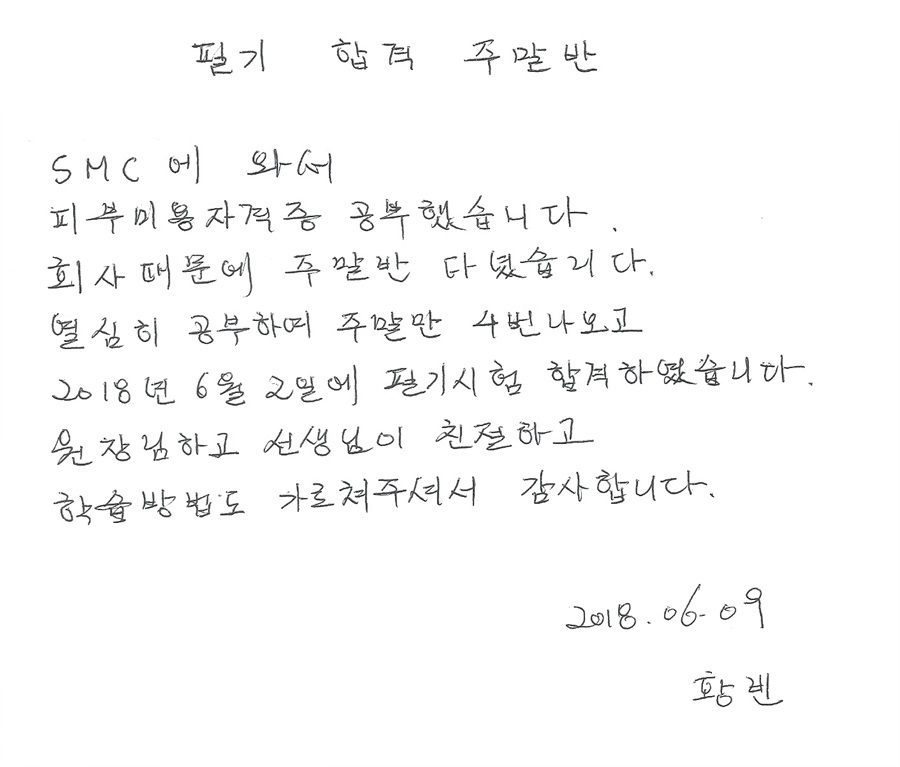 필기 합격 주말반
SMC에 와서
피부미용자격증 공부했습니다.
회사때문에 주말반 다녔습니다.
열심히 공부하여 주말만 4번나오고
2018년 6월 2일에 필기시험 합격하였습니다.
원장님하고 선생님이 친절하고
학습방법도 가르쳐주셔서 감사합니다.
2018.06.09
황렌